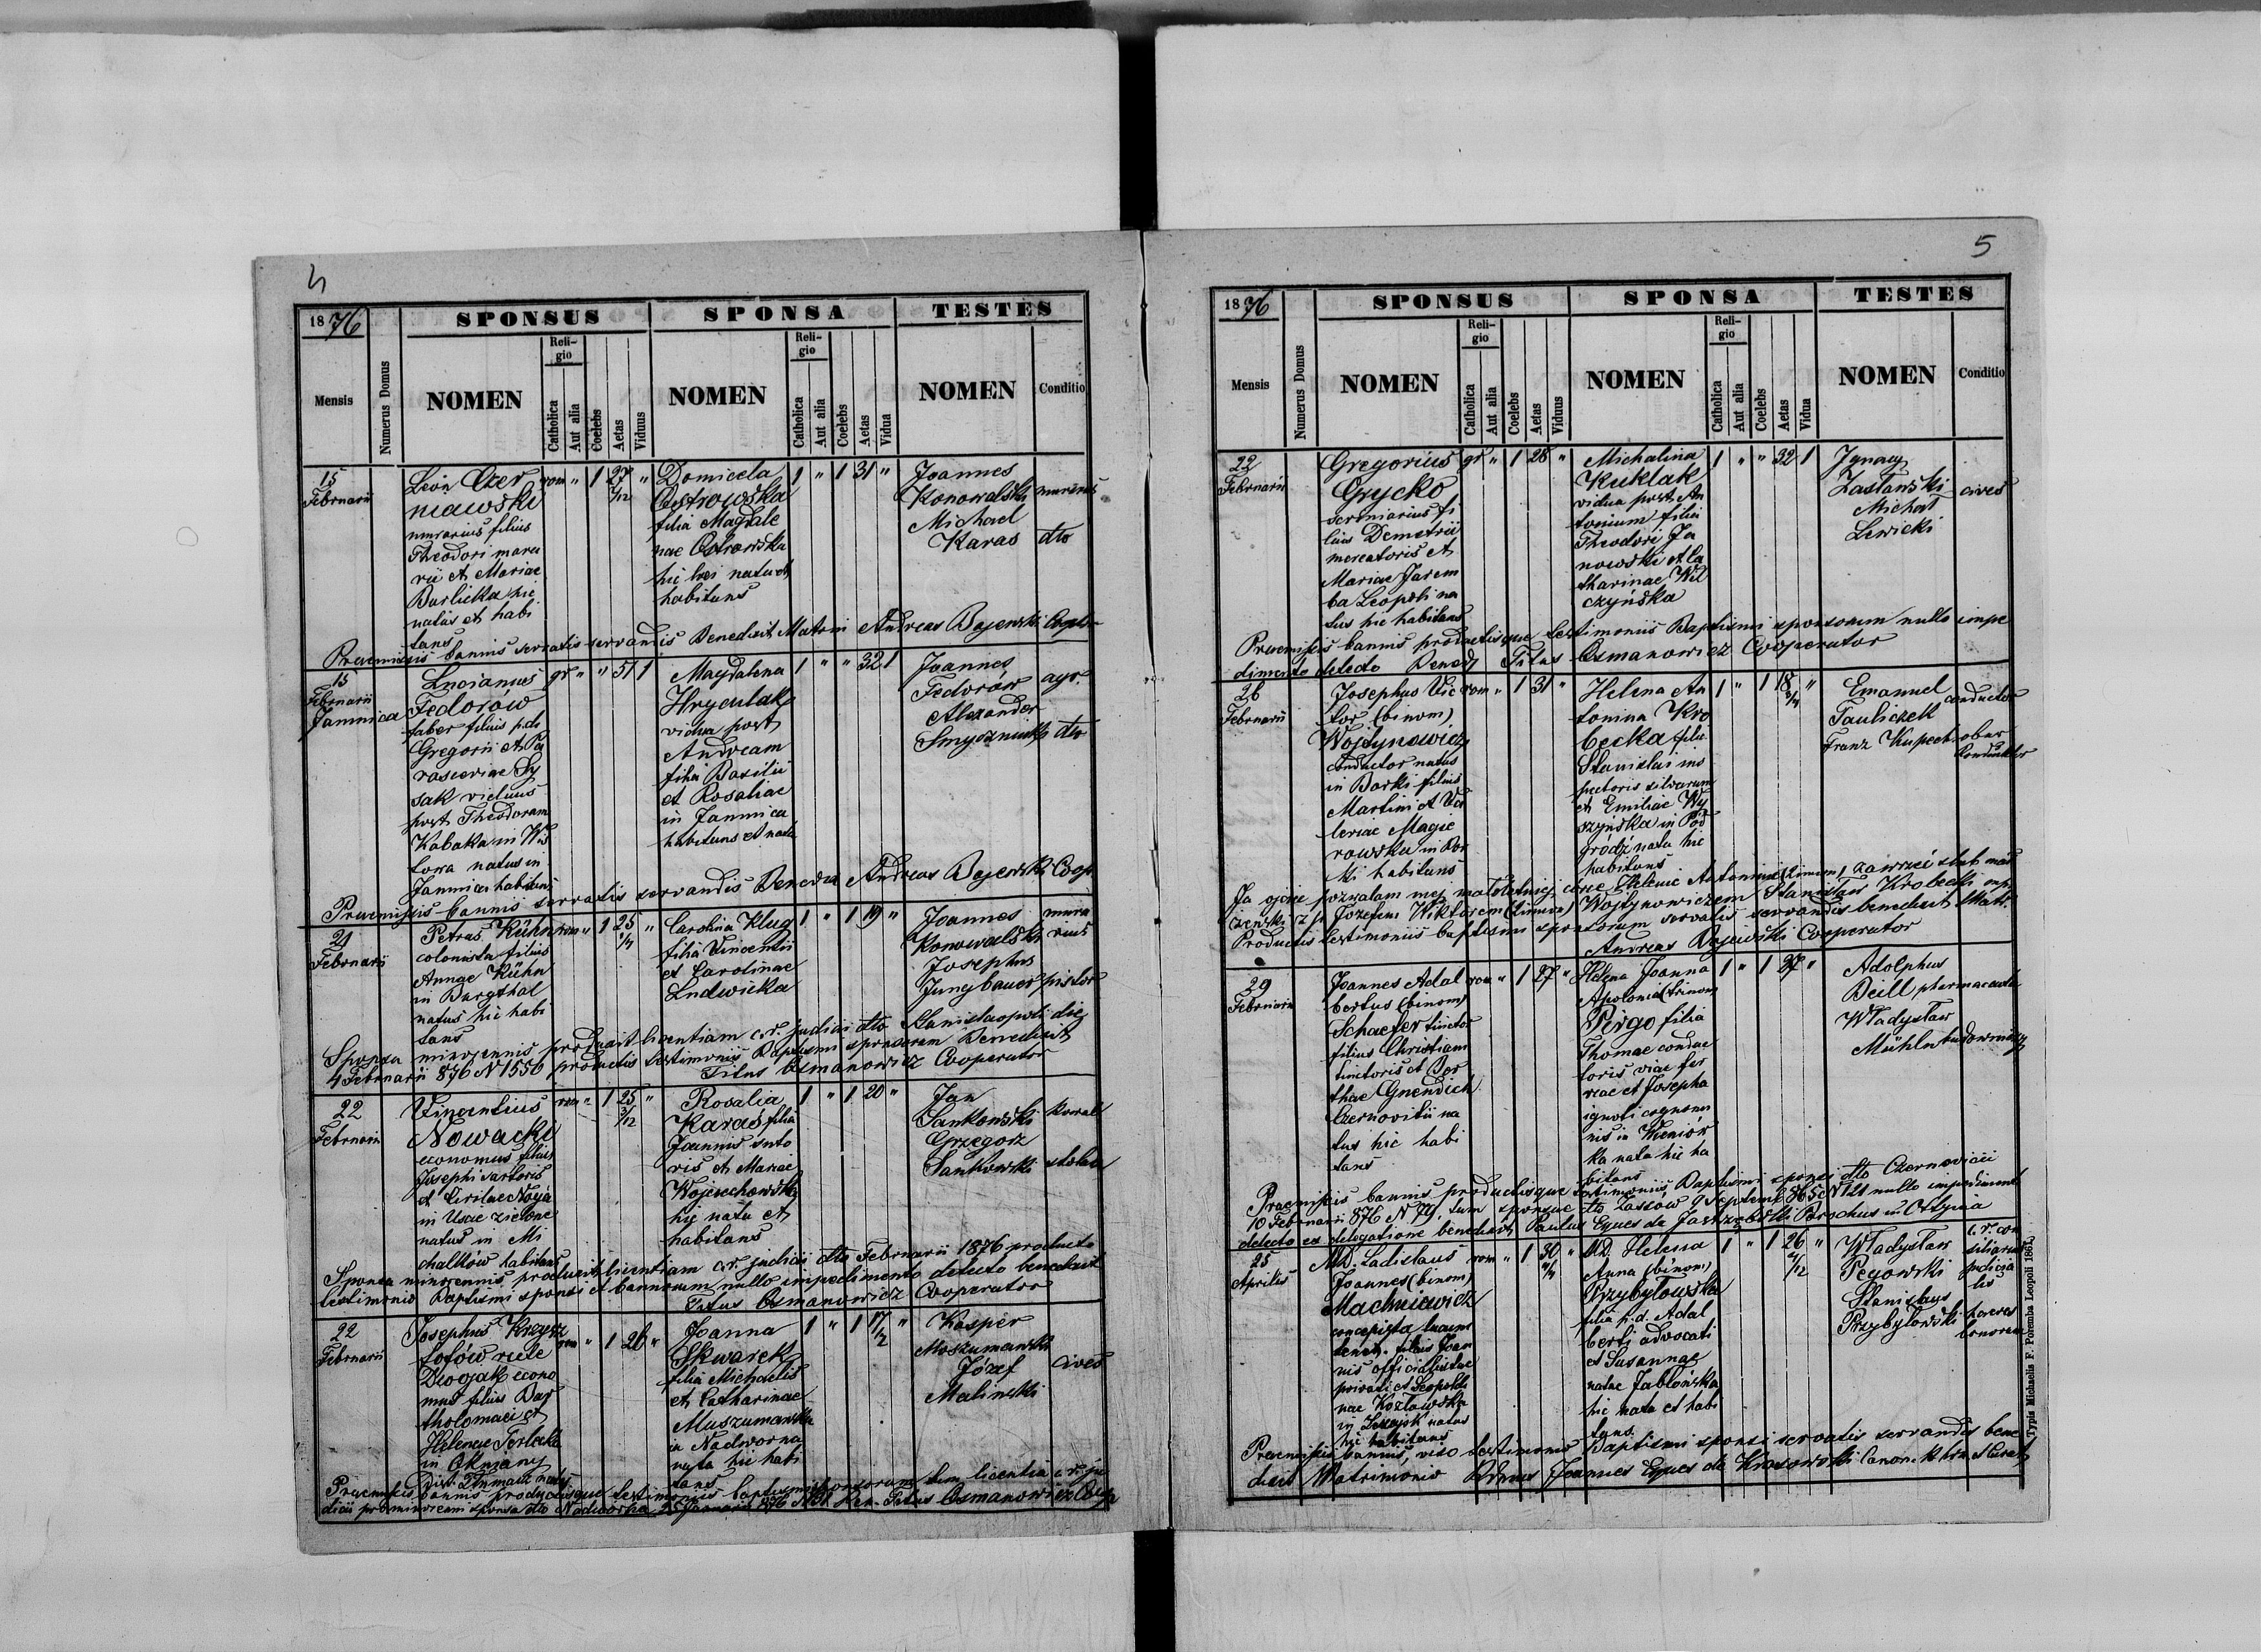 4
1876
SPONSUS
SPONSA
TESTES
Mensis
Numerus Domus
NOMEN
Religio
Catholica
Aut alia
Coelebs
Aetas
Viduus
NOMEN
Religio
Catholica
Aut alia
Coelebs
Aetas
Vidua
NOMEN
Conditio
15
Februarii
Leon Czer
niawski
murarius filius
Theodori mura
rii et Mariae
Burlicka hic
natus et habi
tans
rom " 1 27 "
Domicela
Ostrowska
filia Magdale
nae Ostrowska
hic loci nata et
habitans
1 " 1 31 "
Joannes
Konowalski
Michael
Karas
dto
Praemissis bannis servatis servandis Benedixit Matrim Andreas Bajewski
15
Februarii
Jamnica
Lucianus
Fedorów
faber filius p.d.
Gregorii et Pa
rasceviae Sy
sak viduus
post Theodoram
Kabaka in
natus in
Jamnica habitans
gr " " 51 1
Magdalena
Hryculak
vidua post
Andream
filia Basilii
et Rosaliae
in Jamnica
habitans et nata
1 " " 32 1
Joannes
Fedorów
agr.
Alexander
dto
Praemissis bannis servatis servandis Andreas Bajewski Coop.
21
Februarii
Petrus Kühn
colonista filius
Annae Kühn
in Burgthal
natus hic habi
tans
rom " 1 25 "
Carolina Klug
filia Vincentii
et Carolinae
Ludwicka
1 " 1 19 "
Joannes
Konowalski
mura
rius
Josephus
Jungbauer pistor
Sponsa minorennis produxit licentiam c.r. judicii dto Stanislaopoli die
4 Februarii 876 N 1556 productis testimoniis Baptismi sponsorum Benedixit
Titus Osmanowicz Cooperator
22
Februarii
Vincentius
Nowacki
economus filius
Josephi sartoris
et
in Uście zielone
natus in Mi
chalków habitans
rom " 1 25 "
3/12
Rosalia
Karaś filia
Joannis suto
ris et Mariae
Wojciechowska
hic nata et
habitans
1 " 1 20 "
Jan
Sankowski
kowal
Grzegorz
Sankowski
stolarz
Sponsa minorennis produxit licentiam c.r. judicii dto Februarii 1876 producto
testimonio Baptismi sponsi et bannorum nullo impedimento detecto benedixit
Titus Osmanowicz Cooperator
22
Februarii
Josephus Krzysz
tofów
econo
mus filius Bar
tholomaei et
Helenae
in
rom " 1 26 "
Joanna
Skwarek
filia Michaelis
et Catharinae
Muszumanska
in Nadworna
nata hic habi
tans
1 " 1 17 "
Kasper
Józef
Malinski
cives
Praemissis bannis productisque testimoniis baptismi sponsorum tum licentia c.r. ju
dicii pro minorenni sponsa dto Nadworna 25 Januarii 876 Titus Osmanowicz Coop
5
1876
SPONSUS
SPONSA
TESTES
Mensis
Numerus Domus
NOMEN
Religio
Catholica
Aut alia
Coelebs
Aetas
Viduus
NOMEN
Religio
Catholica
Aut alia
Coelebs
Aetas
Vidua
NOMEN
Conditio
22
Februarii
Gregorius
Grycko
fi
lius Demetrii
mercatoris et
Mariae Jarem
ba Leopoli na
tus hic habitans
gr " 1 28 "
Michalina
Kuklak
vidua post An
tonium filia
Theodori Ja
nowski et Ca
tharinae Wil
czyńska
1 " " 32 1
Ignacy
Zasławski
cives
Michał
Lewicki
Praemissis bannis productisque testimoniis Baptismi sponsorum nullo impe
dimento detecto Bened. Titus Osmanowicz Cooperator
26
Februarii
Josephus Vic
tor (binom)
Wojtynowicz
conductor natus
in Borki filius
Martini et Va
leriae Magie
rowska in Bor
ki habitans
rom " 1 31 "
Helena An
tonina Kro
becka filia
Stanislai ins
pectoris silvarum
et Emiliae Wy
szyńska in Pod
gródź nata hic
habitans
1 " 1 18 "
Emanuel
Pauliczek
conductor
Franz Kupech
ober
Kondukter
Ja ojciec pozwalam mej małoletniej córce Helenie Antoninie (binom) zawrzeć ślub mał
żeński z p. Józefem Wiktorem (binom) Wojtynowiczem Stanisław Krobecki mp.
Productis testimoniis baptismi sponsorum servatis servandis benedixit Matr.
Andreas Bajewski Cooperator
29
Februarii
Joannes Adal
bertus (binom)
Schaefer tinctor
filius Christiani
tinctoris et Ber
thae Gnendich
Czernovitii na
tus hic habi
tans
rom " 1 27 "
Helena Joanna
Apolonia (trinom)
Pirgo filia
Thomae conduc
toris viae fer
reae et Josepha
ignoti cognomi
nis in
nata hic ha
bitans
1 " 1 27 "
Adolphus
Beill pharmaceuta
Władysław
Mühln budowniczy
Praemissis bannis productisque testimoniis Baptismi sponsi dto Czernovicii
10 Februarii 876 N 79, tum sponsae dto Zassów 9 Septemb 865 N 121 nullo impedimento
detecto ex delegatione benedixit Paulus Eques de Jastrzębski Parochus in Ottynia
25
Aprilis
MD. Ladislaus
Joannes (binom)
Machniewicz
concepista locum
tenen. filius Joan
nis officialistae
privati et Leopoldi
nae Kozłowska
in Leżajsk natus
hic habitans
rom " 1 30 "
MD. Helena
Anna (binom)
Przybyłowska
filia p.d. Adal
berti advocati
et Susannae
natae Jabłońska
hic nata et habi
tans.
1 " 1 26 "
Władysław
Pegowski
c.r. con
siliarius
judicia
lis
Stanislaus
Przybyłowski
haeres
bonorum
Praemissis bannis, viso testimonio Baptismi sponsi servatis servandis bene
dixit Matrimonio Joannes Eques de Krasowski Canon.
Typis Michaelis F. Poremba Leopoli 1861.